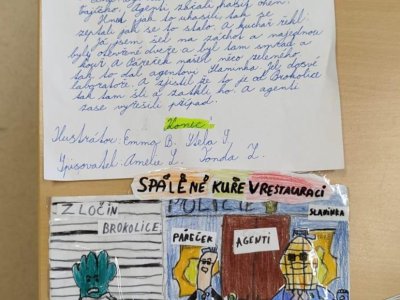 tajícího. Agenti začali hasit oheň.
Hned jak to uhasili, tak se
zeptali jak se to stalo. A kuchař řekl:
Já jsem šel na záchod a najednou
byly otevřené dveře a byl tam
kouř a Páreček našel něco zeleného
tak to dal agentovi Slaninka do
laboratoře. A zjistil že to je od Brokolice
tak tam šli a zatkli ho. A agenti
zase vyřešili případ.
Konec
Ilustrátor: Emma B. Stela
Spisovatel: Amélie L. Tonda Z.
SPÁLĚNÉ KUŘE V RESTAURACI
ZLOČIN
BROKOLICE
POLICIE
PÁREČEK
AGENTI
SLANINKA